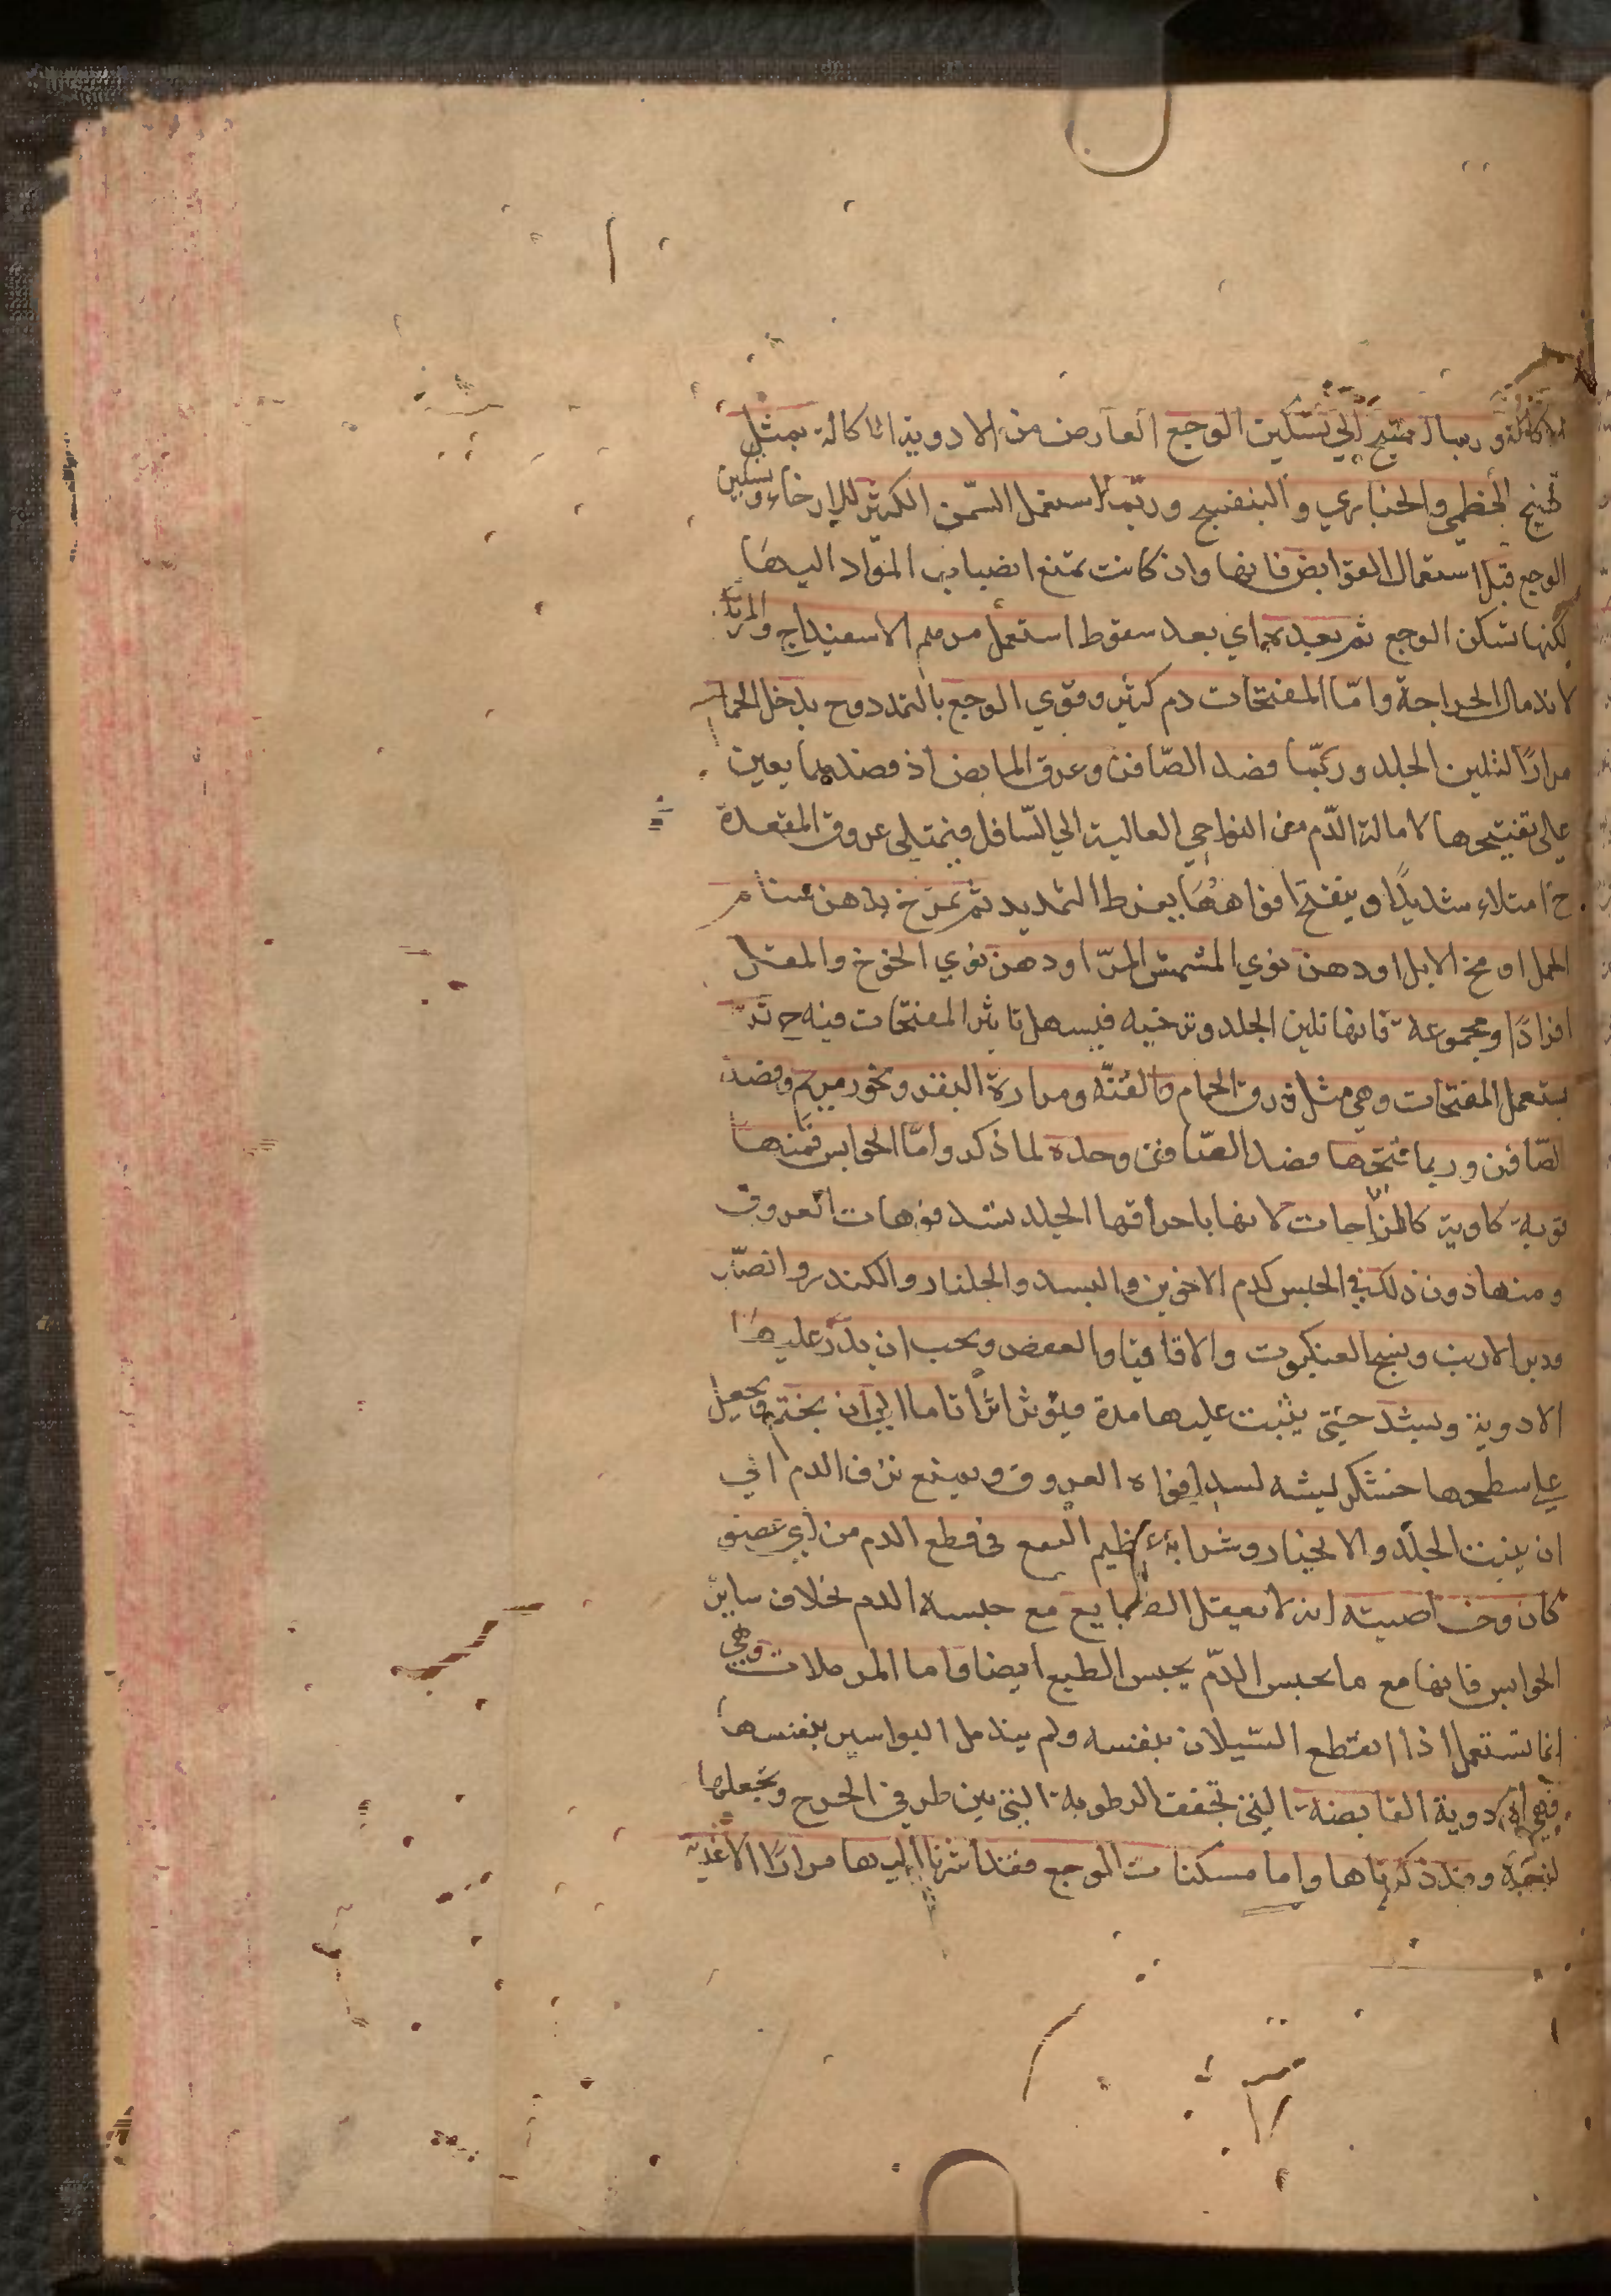 الاكالة وربما احتيج الي تسكين الوجع العارض من الادوية الاكالة بمثل
طبيخ الخطمي والخبازي والبنفسج وربما استعمل السمن الكثير للارخاء وتسكين
الوجع قبل استعمال القوابض فانها وان كانت تمنع انصباب المواد اليها
لكنها تسكن الوجع ثم بعدهما اي بعد سقوط استعمل مرهم الاسفيداج والمرتك
لاندمال الجراحة وامّا المفتحات دم كثير وقوي الوجع بالتمدد وح يدخل الحمام
مرارًا لتليين الجلد وربّما فصد الصّافن وعرق المابض اذ فصدهما يعين
على تفتيحها لامالة الدّم من النواحي العالية الي السّافل فيمتلى عروق المقعدة
ح امتلاء شديدًا وينفتح افواهها بفرط التمديد ثم تمرّخ بدهن سنام
الجمل او مخ الابل او دهن نوي المشمش المرّ او دهن نوي الخوخ والمقل
افرادًا ومجموعة فانها تلين الجلد وترخيه فيسهل تاثير المفتحات فيه ح ثم
يستعمل المفتحات وهي مثل ذرق الحمام والقنّه ومرارة البقر وبخور مريم وفصد
الصّافن وربما فتحها فصد الصّافن وحده لما ذكر وامّا الحوابس فمنها
قوية كاوية كالزاجات لانها باحراقها الجلد تسد فوهات العروق
ومنها دون ذلك في الحبس كدم الاخوين والبسد والجلنار والكندر والصّبر
ووبر الارنب ونسج العنكبوت والاقاقيا والعفص ويجب ان يذرّ عليها
الادوية ويشد حتي يثبت عليها مدة فيؤثر اثرًا تاما الي ان يختم ويجعل
علي سطحها خشكريشه لسد افواه العروق ويمنع نزف الدم الي
ان ينبت الجلد والانجبار وشرابه عظيم النفع في قطع الدم من اي عضو
كان وخاصيته انه لا يعقل الطبايع مع حبسه الدم بخلاف ساير
الحوابس فانها مع ما يحبس الدّم يحبس الطبع ايضا واما المدملات وهي
انما تستعمل اذا انقطع السّيلان بنفسه ولم يندمل البواسير بنفسها
فهي الادوية القابضة التي تجفف الرطوبة التي بين طرفي الجرح وتجعلها
لزجة وقد ذكرناها واما مسكنات الوجع فقد اشرنا اليها مرارًا الاغذية